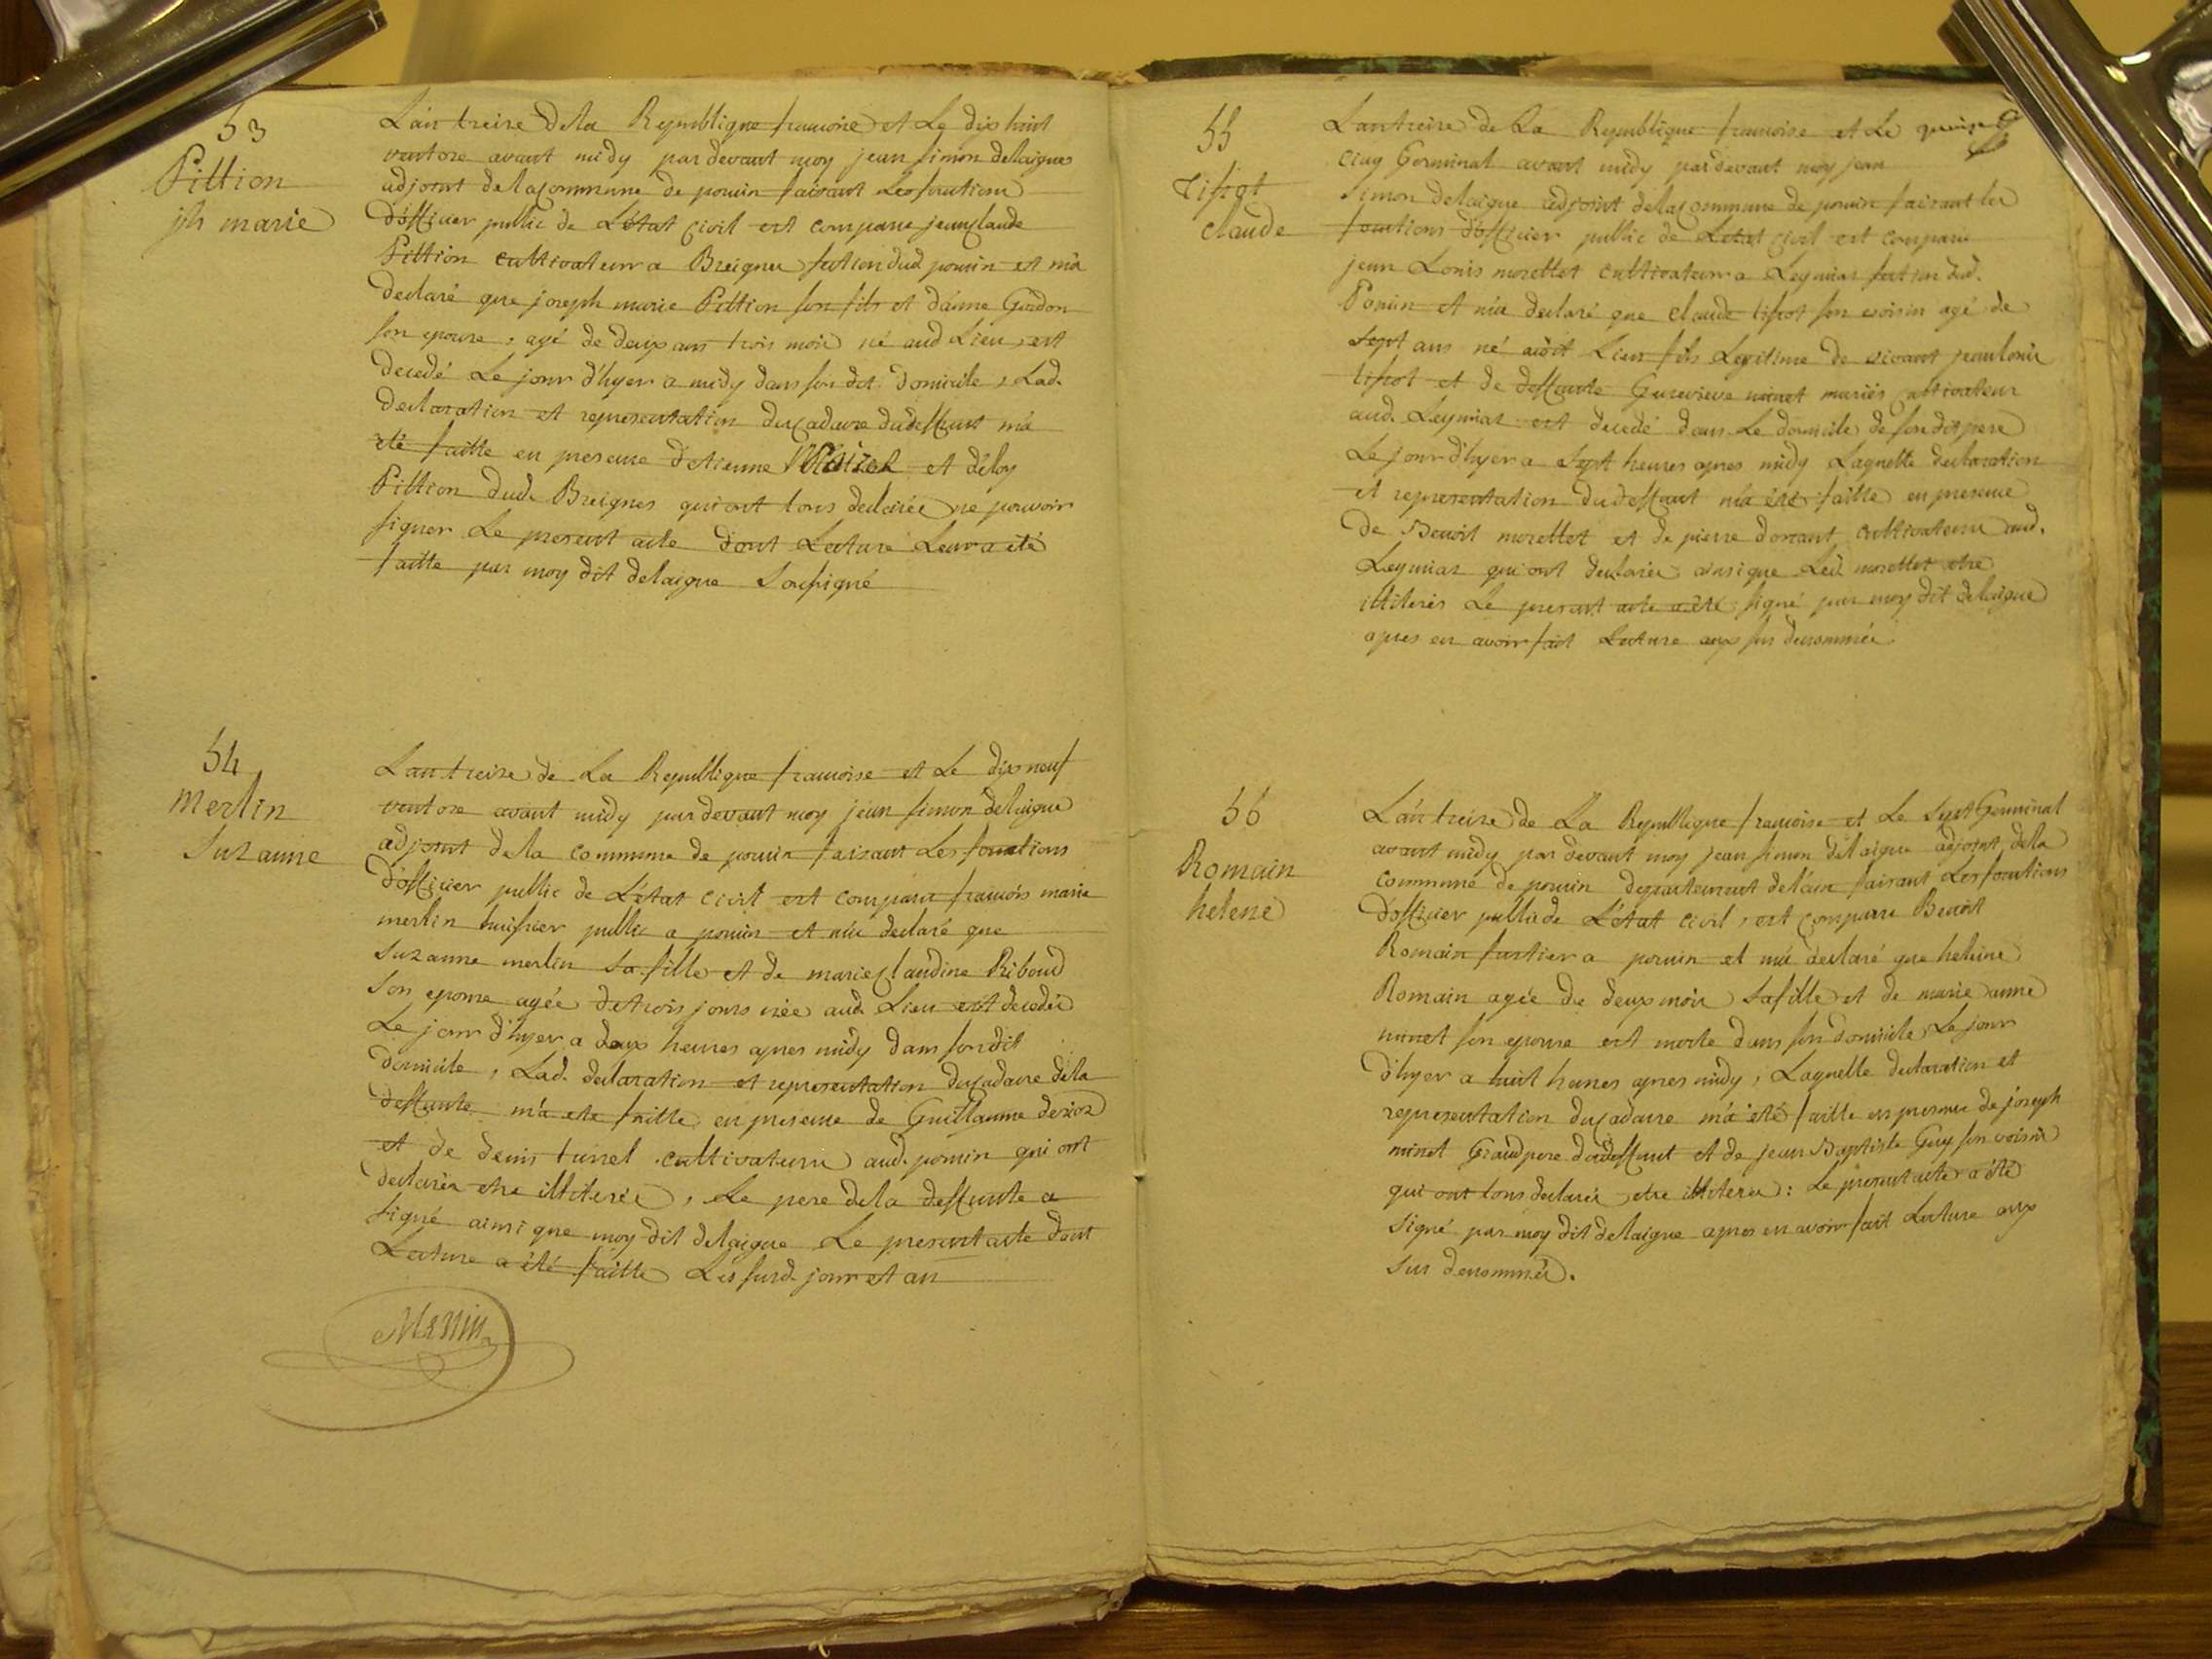 53
Pittion
jh marie
L'an treize dela Republique francoise et Le dix huit
ventose avant midy par devant moy jean simon delaigue
adjoint de la commune de poncin faisant Les fonctions
d'officier public de L'état civil est comparu jean claude
Pittion cultivateur a Breignes section dud poncin et m'a
declaré que joseph marie Pittion son fils et d'anne Gordon
son epouse, agé de deux ans trois mois né aud Lieu, est
decedé Le jour d'hyer a midy dans son dit domicile, Lad.
declaration et representation du cadavre du deffunt m'a
eté faitte en presence d'etienne et d'éloy
Pittion dud. Breignes qui ont tous declarés ne pouvoir
signer Le present acte dont Lecture Leur a eté
faitte par moy dit delaigue Soussigné
54
Merlin
Suzanne
L'an treize de La Republique francoise et Le dix neuf
ventose avant midy par devant moy jean simon delaigue
adjoint dela commune de poncin faisant Les fonctions
d'officier public de L'état civil est comparu francois marie
merlin huissier public a poncin et m'a declaré que
Suzanne merlin sa fille et de marie Claudine Riboud
Son epouse agée de trois jours née aud. Lieu est decedée
Le jour d'hyer a deux heures apres midy dans son dit
domicile, Lad. declaration et representation du cadavre dela
deffunte m'a ete faitte en presence de Guillaume
et de denis tunel cultivateurs aud. poncin qui ont
declarés etre illiterés, Le pere dela deffunte a
signé ainsi que moy dit delaigue Le present acte dont
Lecture a été faitte Les susd. jour et an
Merlin
55
Tissot
claude
L'an treize de La Republique francoise et Le
cinq Germinal avant midy par devant moy jean
Simon delaigue adjoint de la commune de poncin faisant les
fonctions d'officier public de Letat civil est comparu
jean Louis morellet cultivateur a Leymiat section dud.
Poncin et m'a declaré que claude tissot son voisin agé de
sept ans né audit Lieu fils Legitime de vivant jean louis
tissot et de deffunte Genevieve minet mariés cultivateur
aud. Leymiat est decedé dans Le domicile de son dit pere
Le jour d'hyer a Sept heures apres midy Laquelle declaration
et representation du deffunt m'a été faitte en presence
de Benoit morellet et de pierre cultivateurs aud.
Leymiat qui ont declarés ainsi que Led. morellet etre
illiterés Le present acte a été signé par moy dit delaigue
apres en avoir fait Lecture aux sus denommés
56
Romain
helene
L'an treize de La Republique francoise et Le Sept Germinal
avant midy par devant moy jean simon delaigue adjoint dela
commune de poncin departement de l'ain faisant Les fonctions
d'officier public de L'état civil, est comparu Benoit
Romain a poncin et m'a declaré que helene
Romain agée de deux mois Sa fille et de marie anne
minet son epouse est morte dans son domicile, Le jour
d'hyer a huit heures apres midy, Laquelle declaration et
representation du cadavre m'a été faitte en presence de joseph
minet Grand pere du deffunt et de jean Baptiste Guy son voisin
qui ont tous declarés etre illiterés: Le present acte a été
Signé par moy dit delaigue apres en avoir fait Lecture aux
sus denommés.